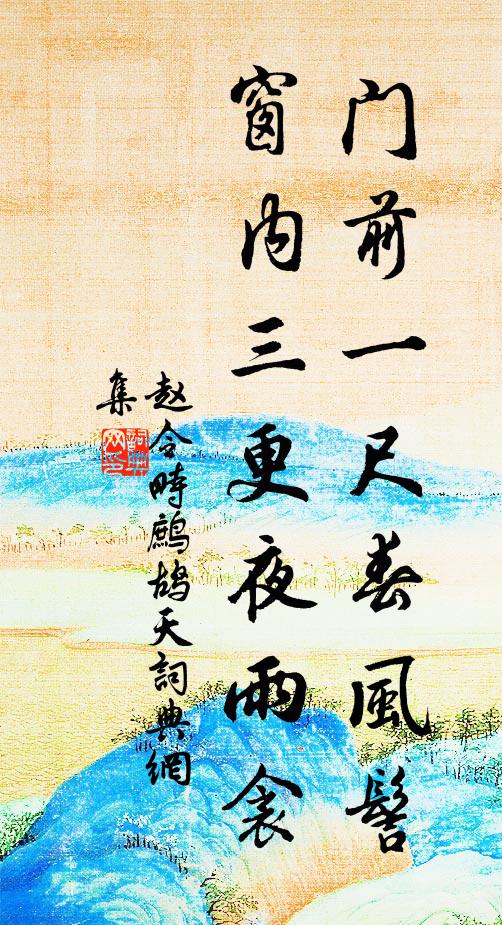 门前一尺春風髻
窗内三更夜雨衾
赵令畤鹧鸪天詞典網
集